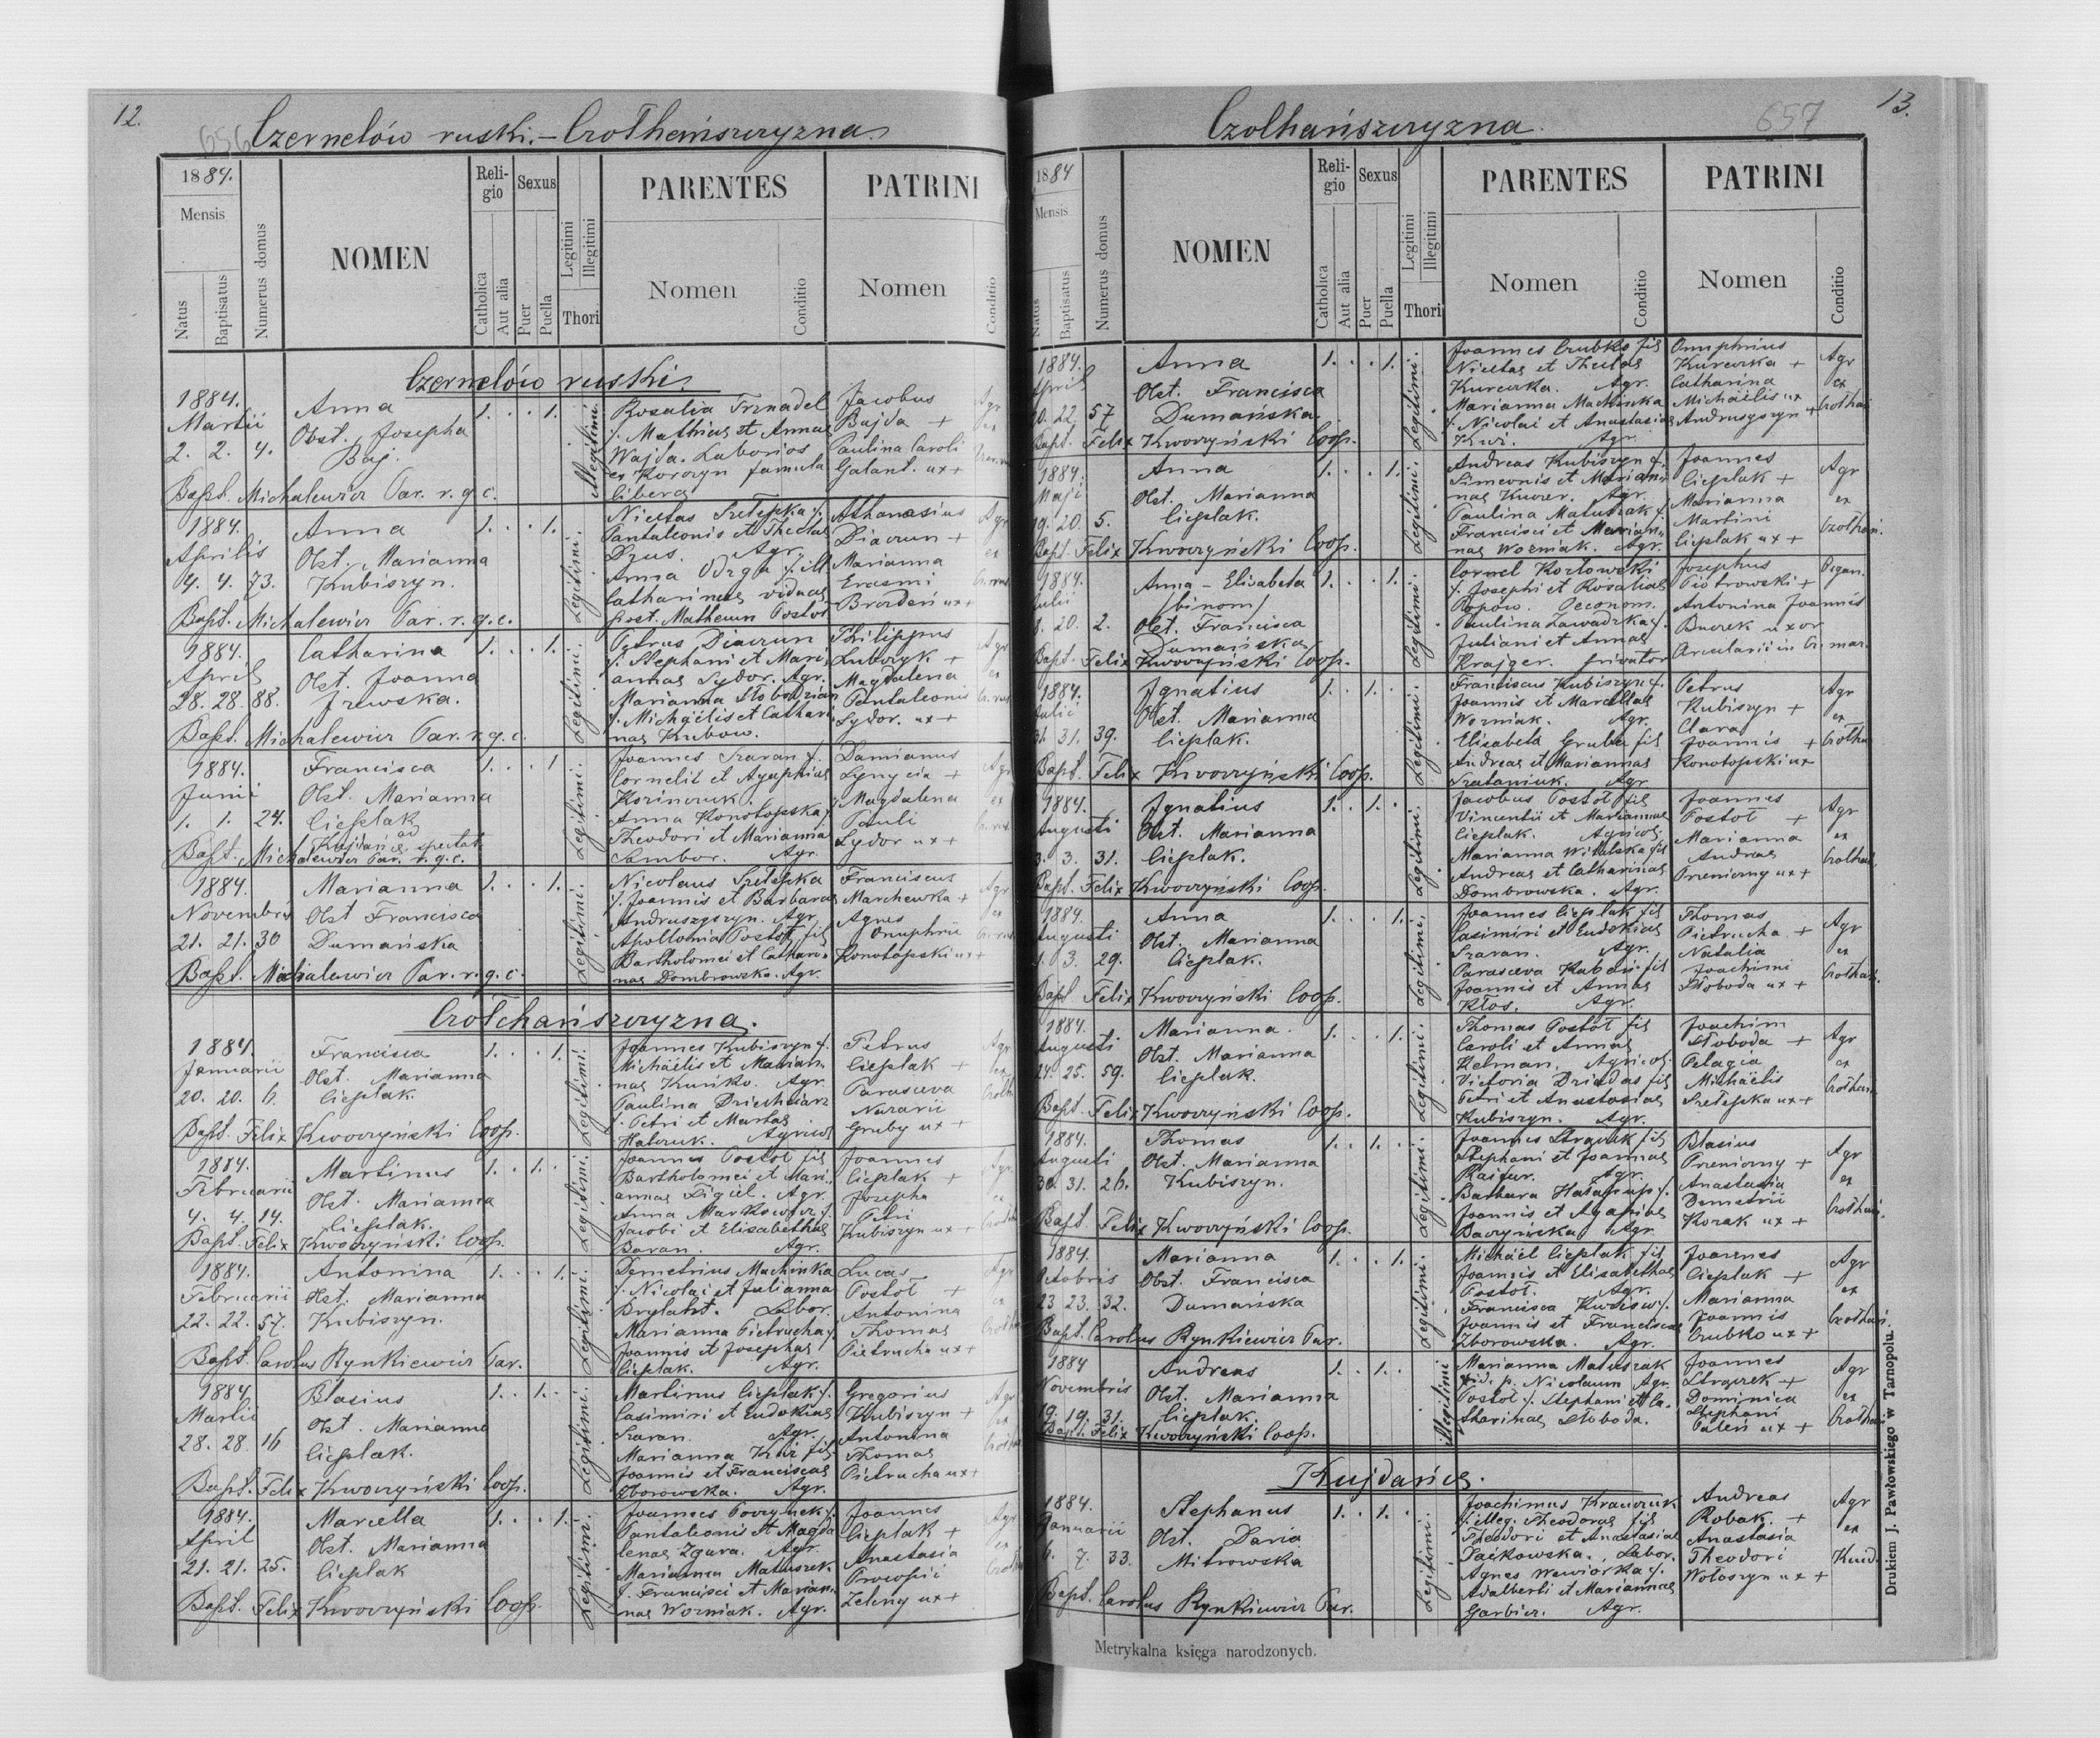 12.
656
Czernelów ruski. – Czołhańszczyzna
1884.
Mensis
Natus
Baptisatus
Numerus domus
NOMEN
Religio
Catholica
Aut alia
Sexus
Puer
Puella
Legitimi
Illegitimi
Thori
PARENTES
Nomen
Conditio
PATRINI
Nomen
Conditio
Czernelów ruski.
1884.
Martii
2. 2. 4.
Anna
Obst. Josepha
Baj.
1. . . 1.
Illegitimi.
Rosalia Trznadel
f. Mathias et Annae
Wajda. Laborios
ex Korczyn famula
libera
Jacobus
Bajda +
Paulina Caroli
Galant. ux +
Bapt. Michalewicz Par. r. g. c.
1884.
Aprilis
4. 4. 73.
Anna
Obst. Marianna
Kubiszyn.
1. . . 1.
Legitimi.
Nicetas Szelepka f.
Pantaleonis et Theclae
Dzus. Agr.
Anna Odzga f. ill
Catharinae viduae
post. Matheum Postoł
Athanasius
Diaczun +
Marianna
Erasmi
Brozden ux +
Bapt. Michalewicz Par. r. g. c.
1884.
April
28. 28. 88.
Catharina
Obst. Joanna
1. . . 1.
Legitimi.
Petrus Diaczun
f. Stephani et Mari
annae Sydor. Agr.
Marianna Słobodzian
f. Michaëlis et Cathari
nae Kubow.
Philippus
Magdalena
Pantaleonis
Sydor. ux +
Bapt. Michalewicz Par. r. g. c.
1884.
Junii
1. 1. 24.
Francisca
Obst. Marianna
Cieplak
ad Kujdańce spectat
1. . . 1
Legitimi.
Joannes Szaran f.
Cornelii et Agaphiae
Anna Konotopska f.
Theodori et Marianna
Sambor. Agr.
Damianus
Magdalena
Pauli
Sydor ux +
Bapt. Michalewicz Par. r. g. c.
1884.
Novembris
21. 21. 30
Marianna
Obst Francisca
Dumańska
1. . . 1.
Legitimi.
Nicolaus Szelepka
f. Joannis et Barbarae
Andruszyszyn. Agr
Apollonia Postoł fil
Bartholomei et Cathari
nae Dombrowska. Agr.
Franciscus
Marchewka +
Agnes
Onuphrii
Konotopski ux +
Bapt. Michalewicz Par. r. g. c.
Czołchańszczyzna.
1884.
Januarii
20. 20. 6.
Francisca
Obst. Marianna
Cieplak
1. . . 1.
Legitimi.
Joannes Kubiszyn f.
Michaëlis et Marian
nae Kuńko. Agr.
Paulina Dziechciarz
f. Petri et Marthae
Agricol
Petrus
Cieplak +
Parasceva
Nazarii
Gruby ux +
Bapt. Felix Kwoczyński Coop.
1884.
Februarii
4. 4. 14.
Martinus
Obst. Marianna
Cieplak.
1. . 1. .
Legitimi.
Joannes Postoł fil
Bartholomei et Mari
annae Figiel. Agr.
Anna Markowicz f.
Jacobi et Elisabethae
Baran. Agr.
Joannes
Cieplak +
Josepha
Petri
Kubiszyn ux +
Bapt. Felix Kwoczyński Coop.
1884.
Februarii
22. 22. 57.
Antonina
Obst. Marianna
Kubiszyn.
1. . . 1.
Legitimi.
Demetrius Machinka
f. Nicolai et Julianna
Brylant. Labor.
Marianna Pietrucha f.
Joannis et Josephae
Cieplak. Agr.
Lucas
Postoł +
Antonina
Thomae
Pietrucha ux +
Bapt. Carolus Rynkiewicz Par.
1884.
Martii
28. 28. 16
Blasius
Obst. Marianna
Cieplak.
1. . 1. .
Legitimi.
Martinus Cieplak f.
Casimiri et Eudokiae
Szaran. Agr.
Marianna Kuź fil
Joannis et Franciscae
Zborowska. Agr.
Gregorius
Kubiszyn +
Antonina
Thomae
Pietrucha ux +
Bapt. Felix Kwoczyński Coop.
1884.
April
21. 21. 25.
Marcella
Obst. Marianna
Cieplak
1. . . 1.
Legitimi.
Joannes Poczynek f.
Pantaleonis et Magda
lenae Zgura. Agr.
Marianna Matuszek
f. Francisci et Marian
nae Wozniak. Agr.
Joannes
Cieplak +
Anastasia
Procopii
Zeleny ux +
Bapt. Felix Kwoczyński Coop.
13.
657
Czołhańszczyzna.
1884
Mensis
Natus
Baptisatus
Numerus domus
NOMEN
Religio
Catholica
Aut alia
Sexus
Puer
Puella
Legitimi
Illegitimi
Thori
PARENTES
Nomen
Conditio
PATRINI
Nomen
Conditio
1884.
April
20. 22. 57
Anna
Obst. Francisca
Dumańska
1. . . 1.
Legitimi.
Joannes Czubko fil
Nicetae et Theclae
Kurczka. Agr.
Marianna Machinka
f. Nicolai et Anastasiae
Agr.
Onuphrius
Kurczka +
Catharina
Michaëlis ux
Andruszyszyn +
Agr
ex
Czołhań
Bapt. Felix Kwoczyński Coop.
1884.
Maji
19. 20. 5.
Anna
Obst. Marianna
Cieplak.
1. . . 1.
Legitimi.
Andreas Kubiszyn f.
Simeonis et Marian
nae Kuczer. Agr.
Paulina Matuszak f.
Francisci et Marian
nae Wozniak. Agr.
Joannes
Cieplak +
Marianna
Martini
Cieplak ux +
Agr
ex
Czołhań.
Bapt. Felix Kwoczyński Coop.
1884.
Julii
8. 20. 2.
Anna – Elisabeta
/binom/
Obst. Francisca
Dumańska
1. . . 1.
Legitimi.
Cornel Kozłowski
f. Josephi et Rosaliae
Popów. Oeconom.
Paulina Zawadzka f.
Juliani et Annae
Krajger. privator
Josephus
Piotrowski +
Antonina Joannis
Buczek uxor
Organ.
Bapt. Felix Kwoczyński Coop.
1884.
Julii
31. 31. 39.
Ignatius
Obst. Marianna
Cieplak.
1. . 1. .
Legitimi.
Franciscus Kubiszyn f.
Joannis et Marcellae
Wozniak. Agr.
Elisabeta Gruba fil
Andreae et Mariannae
Szataniuk. Agr
Petrus
Kubiszyn +
Clara
Joannis +
Konotopski ux
Agr
ex
Czołha
Bapt. Felix Kwoczyński Coop.
1884
Augusti
3. 3. 31.
Ignatius
Obst. Marianna
Cieplak.
1. . 1. .
Legitimi.
Jacobus Postoł fil
Vincentii et Mariannae
Cieplak. Agricol.
Marianna Witalska fil
Andreae et Catharinae
Dombrowska. Agr.
Joannes
Postoł +
Marianna
Andreae
Prieniczny ux +
Agr
ex
Czołhań.
Bapt. Felix Kwoczyński Coop.
1884
Augusti
1. 3. 29.
Anna
Obst. Marianna
Cieplak.
1. . . 1.
Legitimi.
Joannes Cieplak fil
Casimiri et Eudokiae
Szaran. Agr.
Parasceva Kaban fil
Joannis et Annae
Kłos. Agr.
Thomas
Pietrucha +
Natalia
Joachimi
Słoboda ux +
Agr
ex
Czołhań.
Bapt Felix Kwoczyński Coop.
1884.
Augusti
24. 25. 59.
Marianna.
Obst. Marianna
Cieplak.
1. . . 1.
Legitimi.
Thomas Postoł fil
Caroli et Annae
Kelman. Agricol.
Victoria Driadas fil
Petri et Anastasiae
Kubiszyn. Agr.
Joachim
Słoboda +
Pelagia
Michaëlis
Szelepka ux +
Agr
ex
Czołhań
Bapt. Felix Kwoczyński Coop.
1884.
Augusti
30. 31. 26.
Thomas
Obst. Marianna
Kubiszyn.
1. . 1. .
Legitimi.
Joannes Strączek fil
Stephani et Joannae
Agr.
Barbara
Joannis et Agapiae
Agr
Blasius
Prieniczny +
Anastasia
Demetrii
Kozak ux +
Agr
ex
Czołhań.
Bapt. Felix Kwoczyński Coop.
1884
Octobris
23 23. 32.
Marianna
Obst. Francisca
Dumańska
1. . . 1.
Legitimi.
Michaël Cieplak fil
Joannis et Elisabethae
Postoł. Agr.
Francisca
Joannis et Franciscae
Zborowska. Agr.
Joannes
Cieplak +
Marianna
Joannis
Czubko ux +
Agr
ex
Czołhań.
Bapt. Carolus Rynkiewicz Par.
1884
Novembris
19. 19. 31.
Andreas
Obst. Marianna
Cieplak.
1. . 1. .
Illegitimi
Marianna Matuszak
vid. p. Nicolaum Agr.
Postoł f. Stephani et Ca
tharinae Słoboda.
Joannes
Strączek +
Dominica
Stephani
Paleń ux +
Agr
ex
Czołhań
Bapt. Felix Kwoczyński Coop.
Kujdańce.
1884.
Januarii
6. 7. 33.
Stephanus
Obst. Daria
Mitrowska
1. . 1. .
Legitimi.
Joachimus Krawczuk
f. illeg. Theodorae fil
Theodori et Anastasiae
Paćkowska. Labor.
Agnes Wawiorka f.
Adalberti et Mariannae
Garbicz. Agr.
Andreas
Robak. +
Anastasia
Theodori
Wołoszyn ux +
Agr
ex
Kuid.
Bapt. Carolus Rynkiewicz Par.
Metrykalna księga narodzonych.
Drukiem J. Pawłowskiego w Tarnopolu.